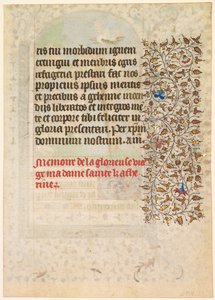 cris tui morbidum ignem
extingui et membris egris
refugeria prestari fac nos
propicius ipsius meritis
et precibus a gehenne incen
diis liberatos et integros men
te et corpore tibi feliciter in
gloria presentari. Per xpm
dominum nostrum. am.
Memoire de la glorieuse vier
ge ma dame sainte kathe
rine.